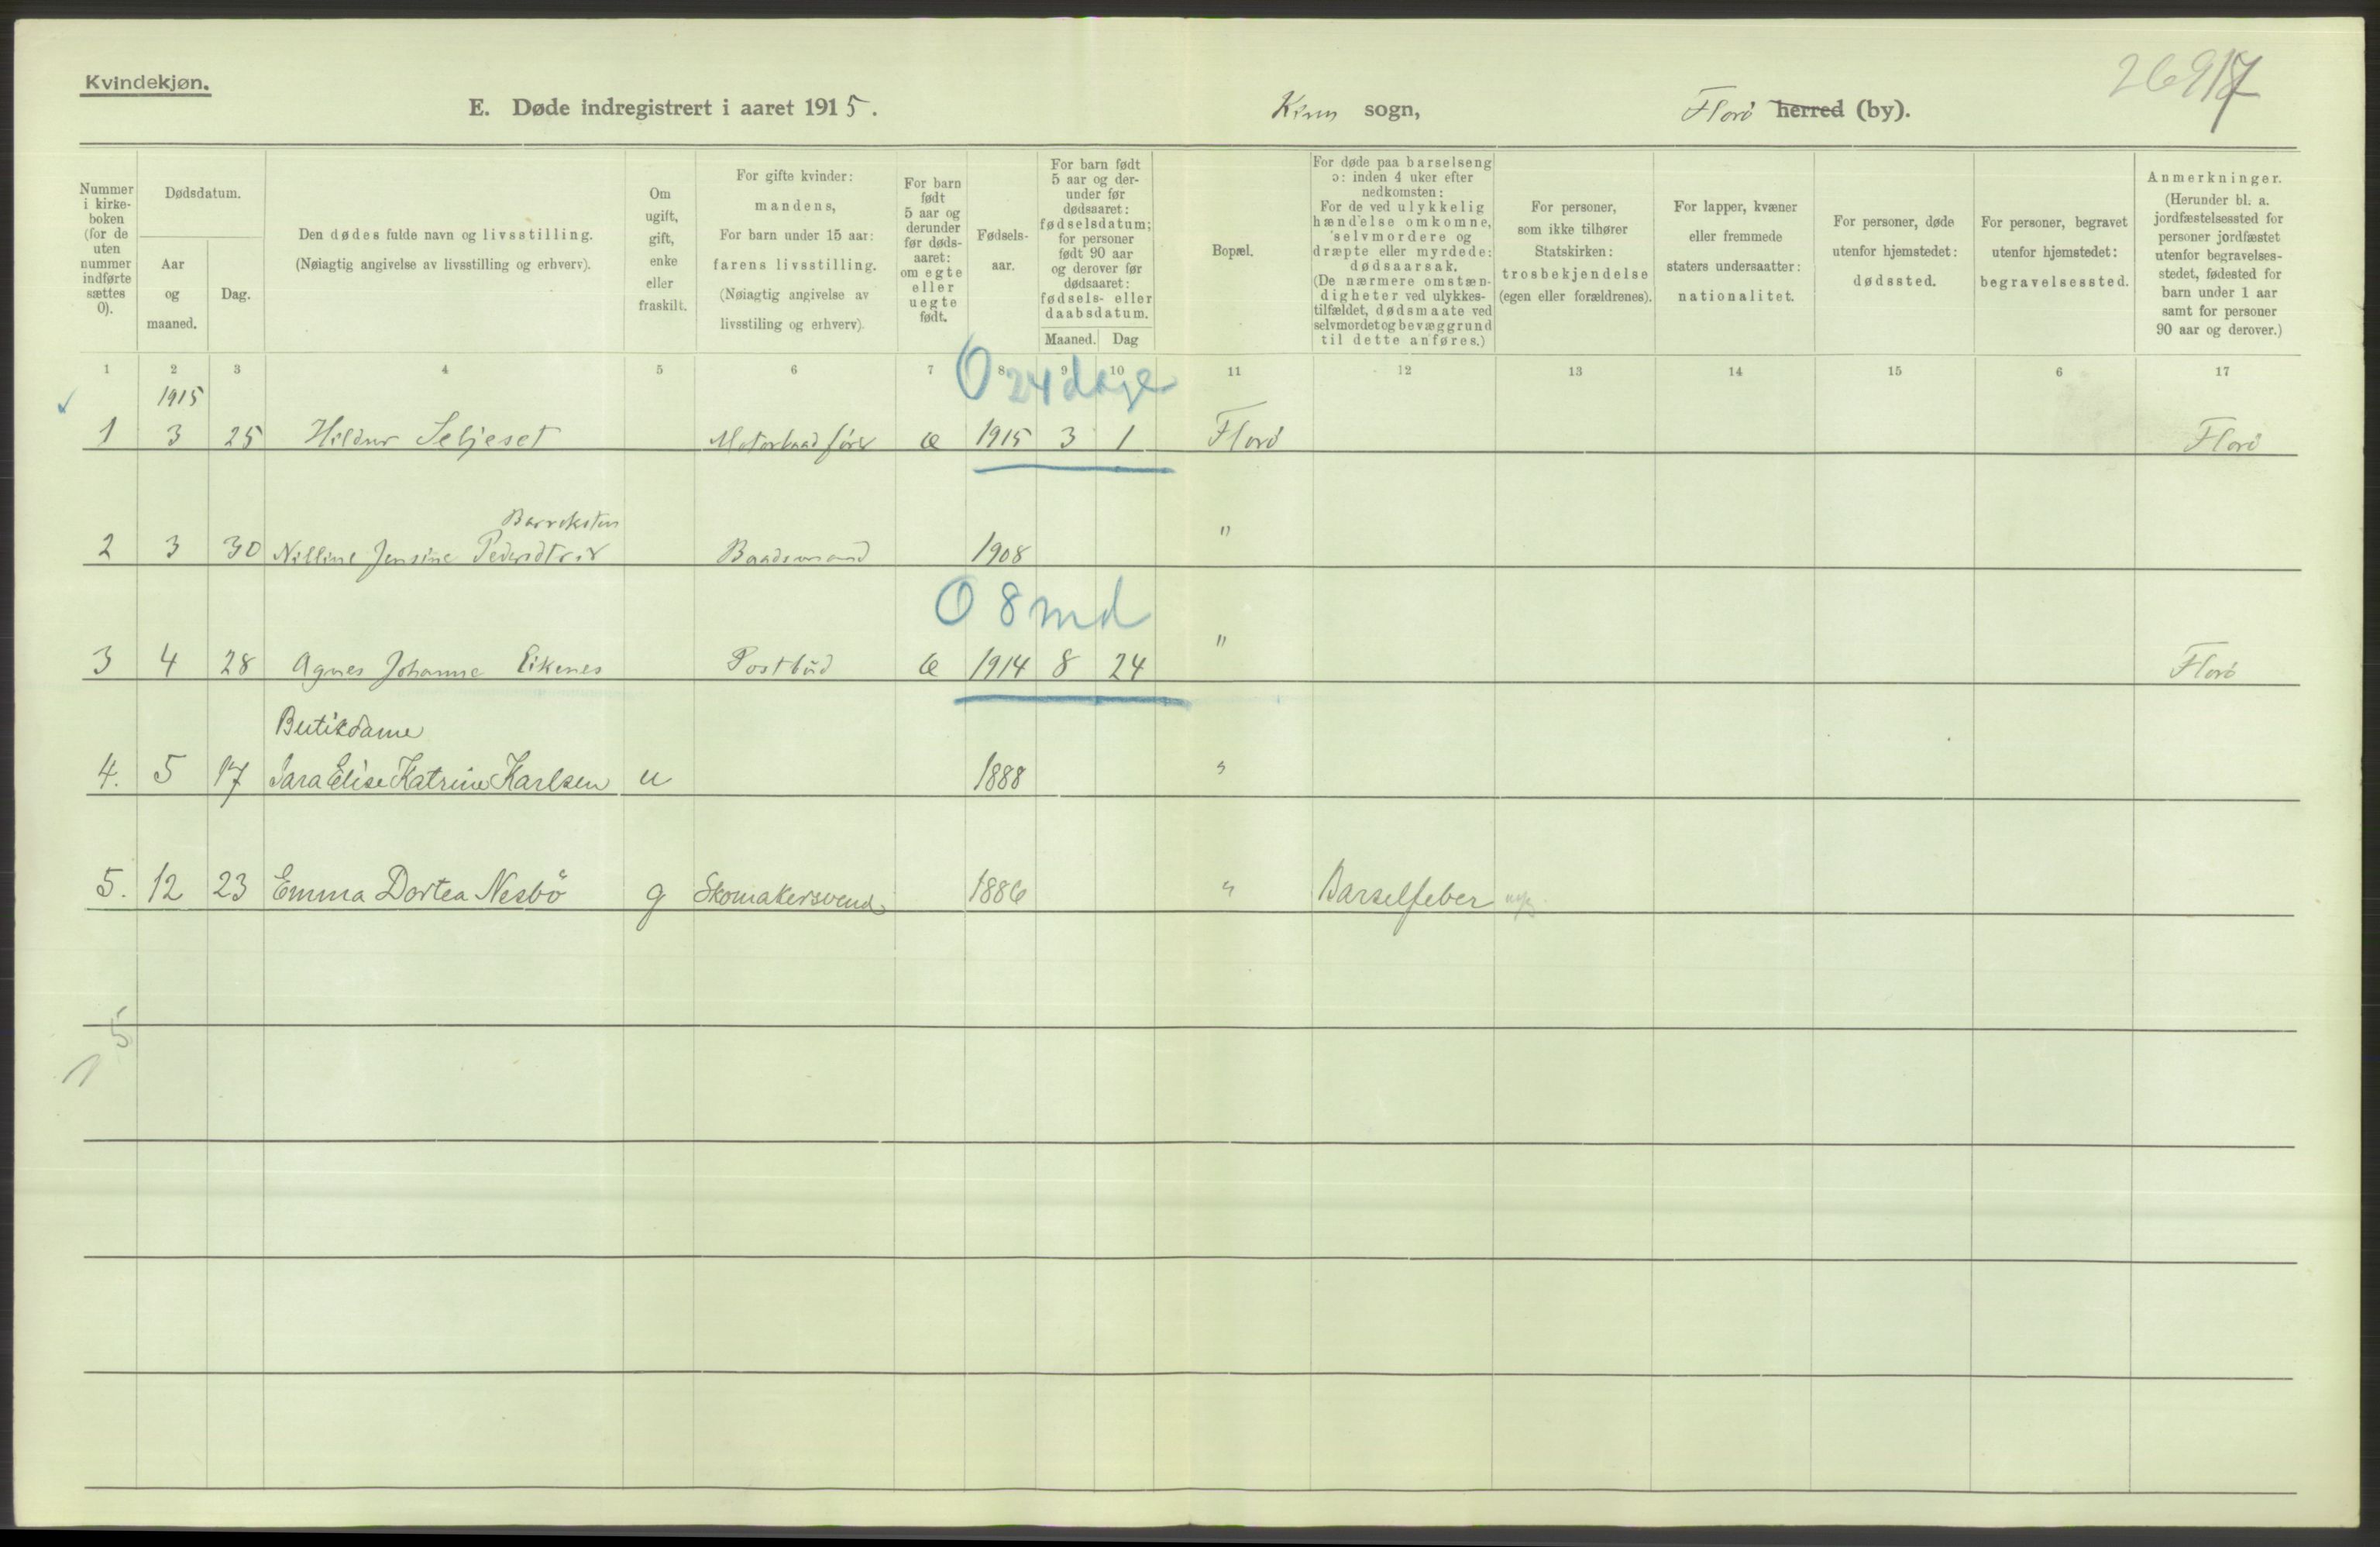 Kvindekjøn.
E. Døde indregistrert i aaret 1915. Kinn sogn, Florö herred (by).
Nummer i kirke-boken (for de uten nummer indførte sættes 0).
Dødsdatum.
Aar og maaned.
Dag.
Den dødes fulde navn og livsstilling.
(Nøiagtig angivelse av livsstilling og erhverv).
Om ugift, gift, enke eller fraskilt.
For gifte kvinder: mandens,
For barn under 15 aar: farens livsstilling.
(Nøiagtig angivelse av livsstiling og erhverv).
For barn født 5 aar og derunder før døds-aaret: om egte eller uegte født.
Fødsels-aar.
For barn født 5 aar og der-under før dødsaaret: fødselsdatum; for personer født 90 aar og derover før dødsaaret: fødsels- eller daabsdatum.
Maaned. Dag
Bopæl.
For døde paa barselseng ɔ: inden 4 uker efter nedkomsten:
For de ved ulykkelig hændelse omkomne, selvmordere og dræpte eller myrdede: dødsaarsak.
(De nærmere omstæn-digheter ved ulykkes-tilfældet, dødsmaate ved selvmordet og bevæggrund til dette anføres.)
For personer, som ikke tilhører Statskirken: trosbekjendelse (egen eller forældrenes).
For lapper, kvæner eller fremmede staters undersaatter: nationalitet.
For personer, døde utenfor hjemstedet: dødssted.
For personer, begravet utenfor hjemstedet: begravelsessted.
Anmerkninger.
(Herunder bl. a. jordfæstelsessted for personer jordfæstet utenfor begravelses-stedet, fødested for barn under 1 aar samt for personer 90 aar og derover.)
1 2 3 4 5 6 7 8 9 10 11 12 13 14 15 6 17
1915
0 24 dage
1 3 25 Hildur Seljeset Motorbaadfører E 1915 3 1 Florö Florö
Barreksten
2 3 30 Nilline Jensine Baadsmand 1908 "
0 8 md
3 4 28 Agnes Johanne Eikenes Postbud E 1914 8 24 " Florö
Butikdame
4. 5 17 Sara Elise Katrine Karlsen u 1888 "
5. 12 23 Emma Dortea Nesbö g Skomakersvend 1886 " Barselfeber
5
1